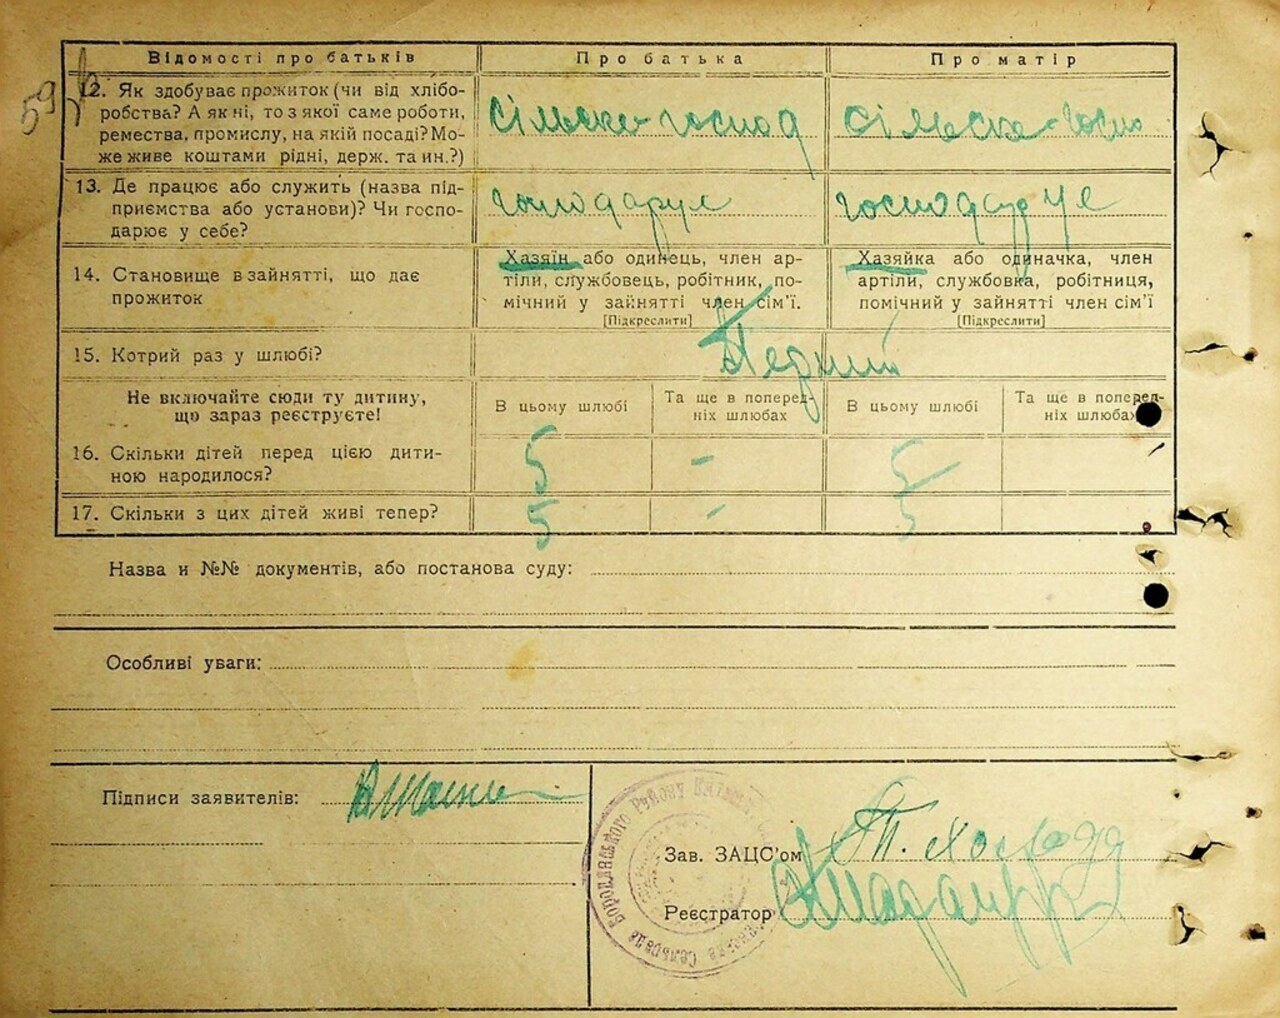 59
Відомості про батьків
Про батька
Про матір
12. Як здобуває прожиток (чи від хлібо-
робства? А як ні, то з якої саме роботи,
ремества, промислу, на якій посаді? Мо-
же живе коштами рідні, держ. та ин.?)
сільське-господ
сільске-госпо
13. Де працює або служить (назва під-
приємства або установи)? Чи госпо-
дарює у себе?
господарує
господарує
14. Становище в зайнятті, що дає
прожиток
Хазяїн або одинець, член ар-
тіли, службовець, робітник, по-
мічний у зайнятті член сім'ї.
[Підкреслити]
Хазяйка або одиначка, член
артіли, службовка, робітниця,
помічний у зайнятті член сім'ї
[Підкреслити]
15. Котрий раз у шлюбі?
Не включайте сюди ту дитину,
що зараз реєструєте!
В цьому шлюбі
Та ще в поперед-
ніх шлюбах
В цьому шлюбі
Та ще в поперед-
ніх шлюбах
16. Скільки дітей перед цією дити-
ною народилося?
5
-
5
17. Скільки з цих дітей живі тепер?
5
-
5
Назва и №№ документів, або постанова суду:
Особливі уваги:
Підписи заявителів:
Бородянського Району
Сельрада
Зав. ЗАЦС'ом
Реєстратор